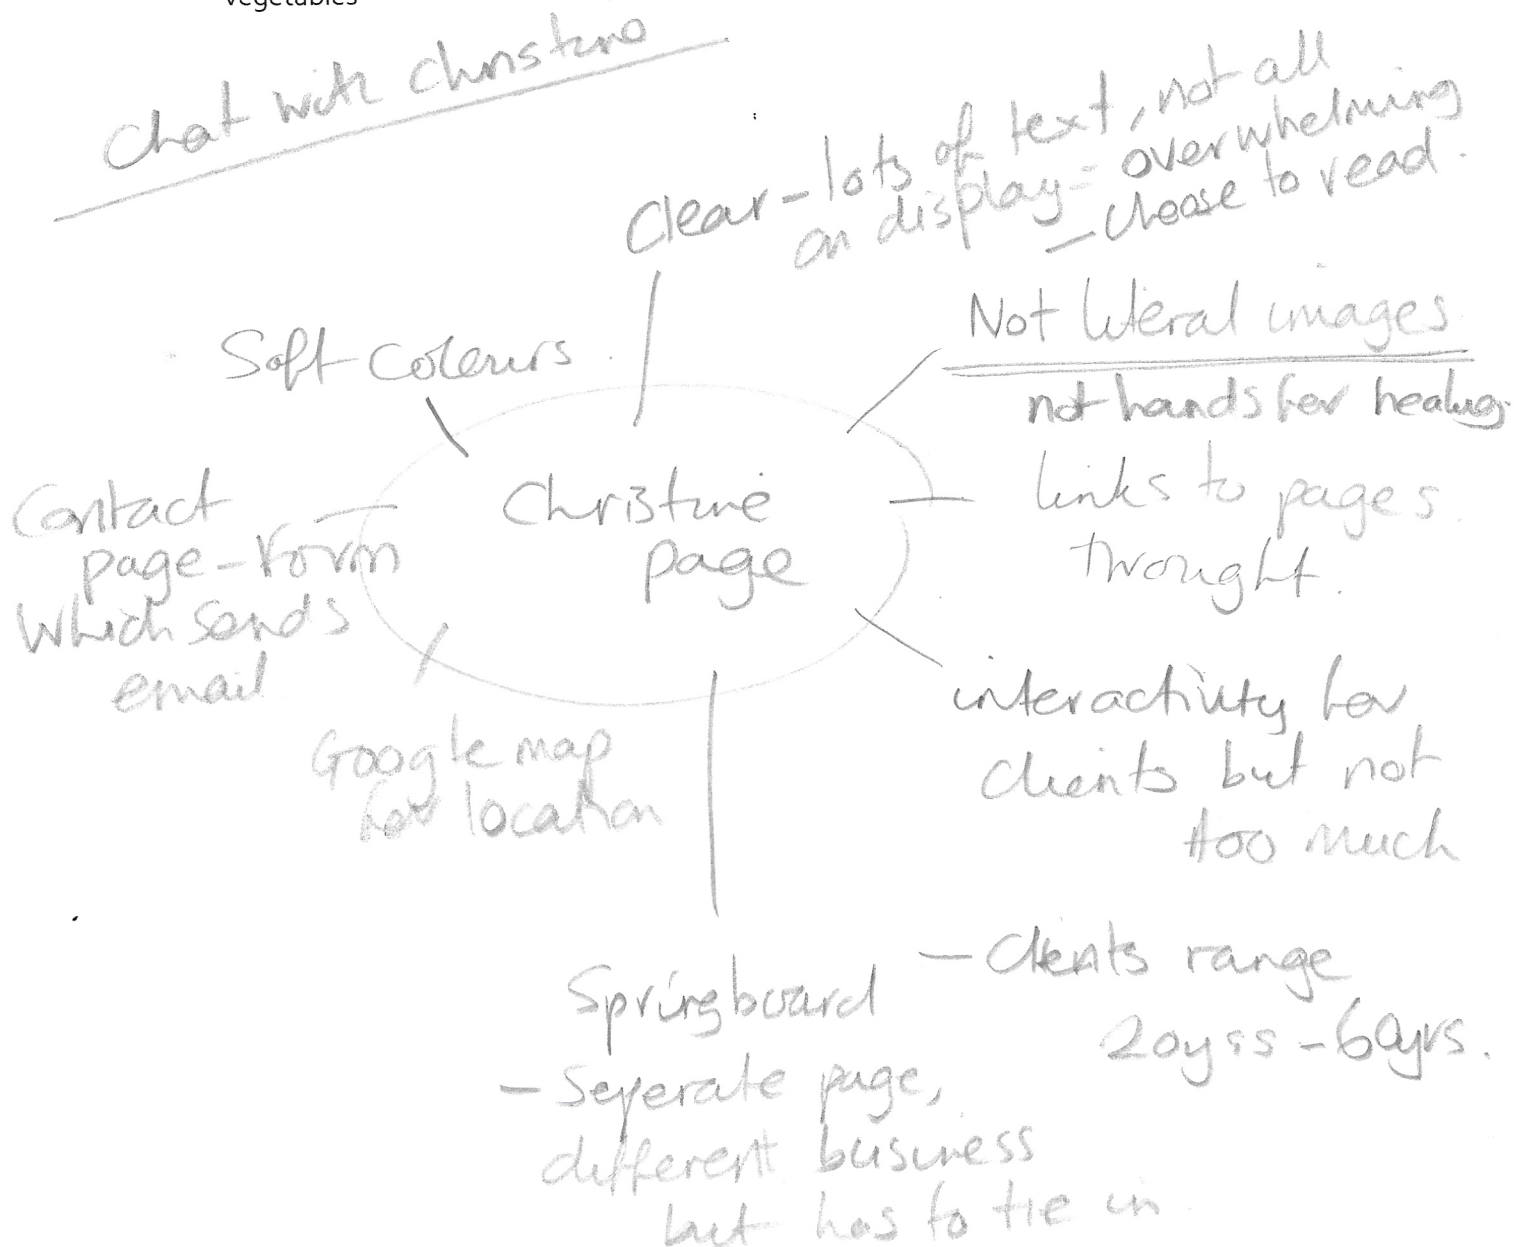 vegetables
Chat with Christine
Clear - lots of text, not all
on display = overwhelming
- choose to read.
Soft Colours
Not literal images
not hands for healing.
Christine
page
links to pages
throught.
Contact
page - form
which sends
email
interactivity for
clients but not
too much
Google map
for location
Springboard
- Seperate page,
different business
but has to tie in
- Clients range
20yrs - 60yrs.